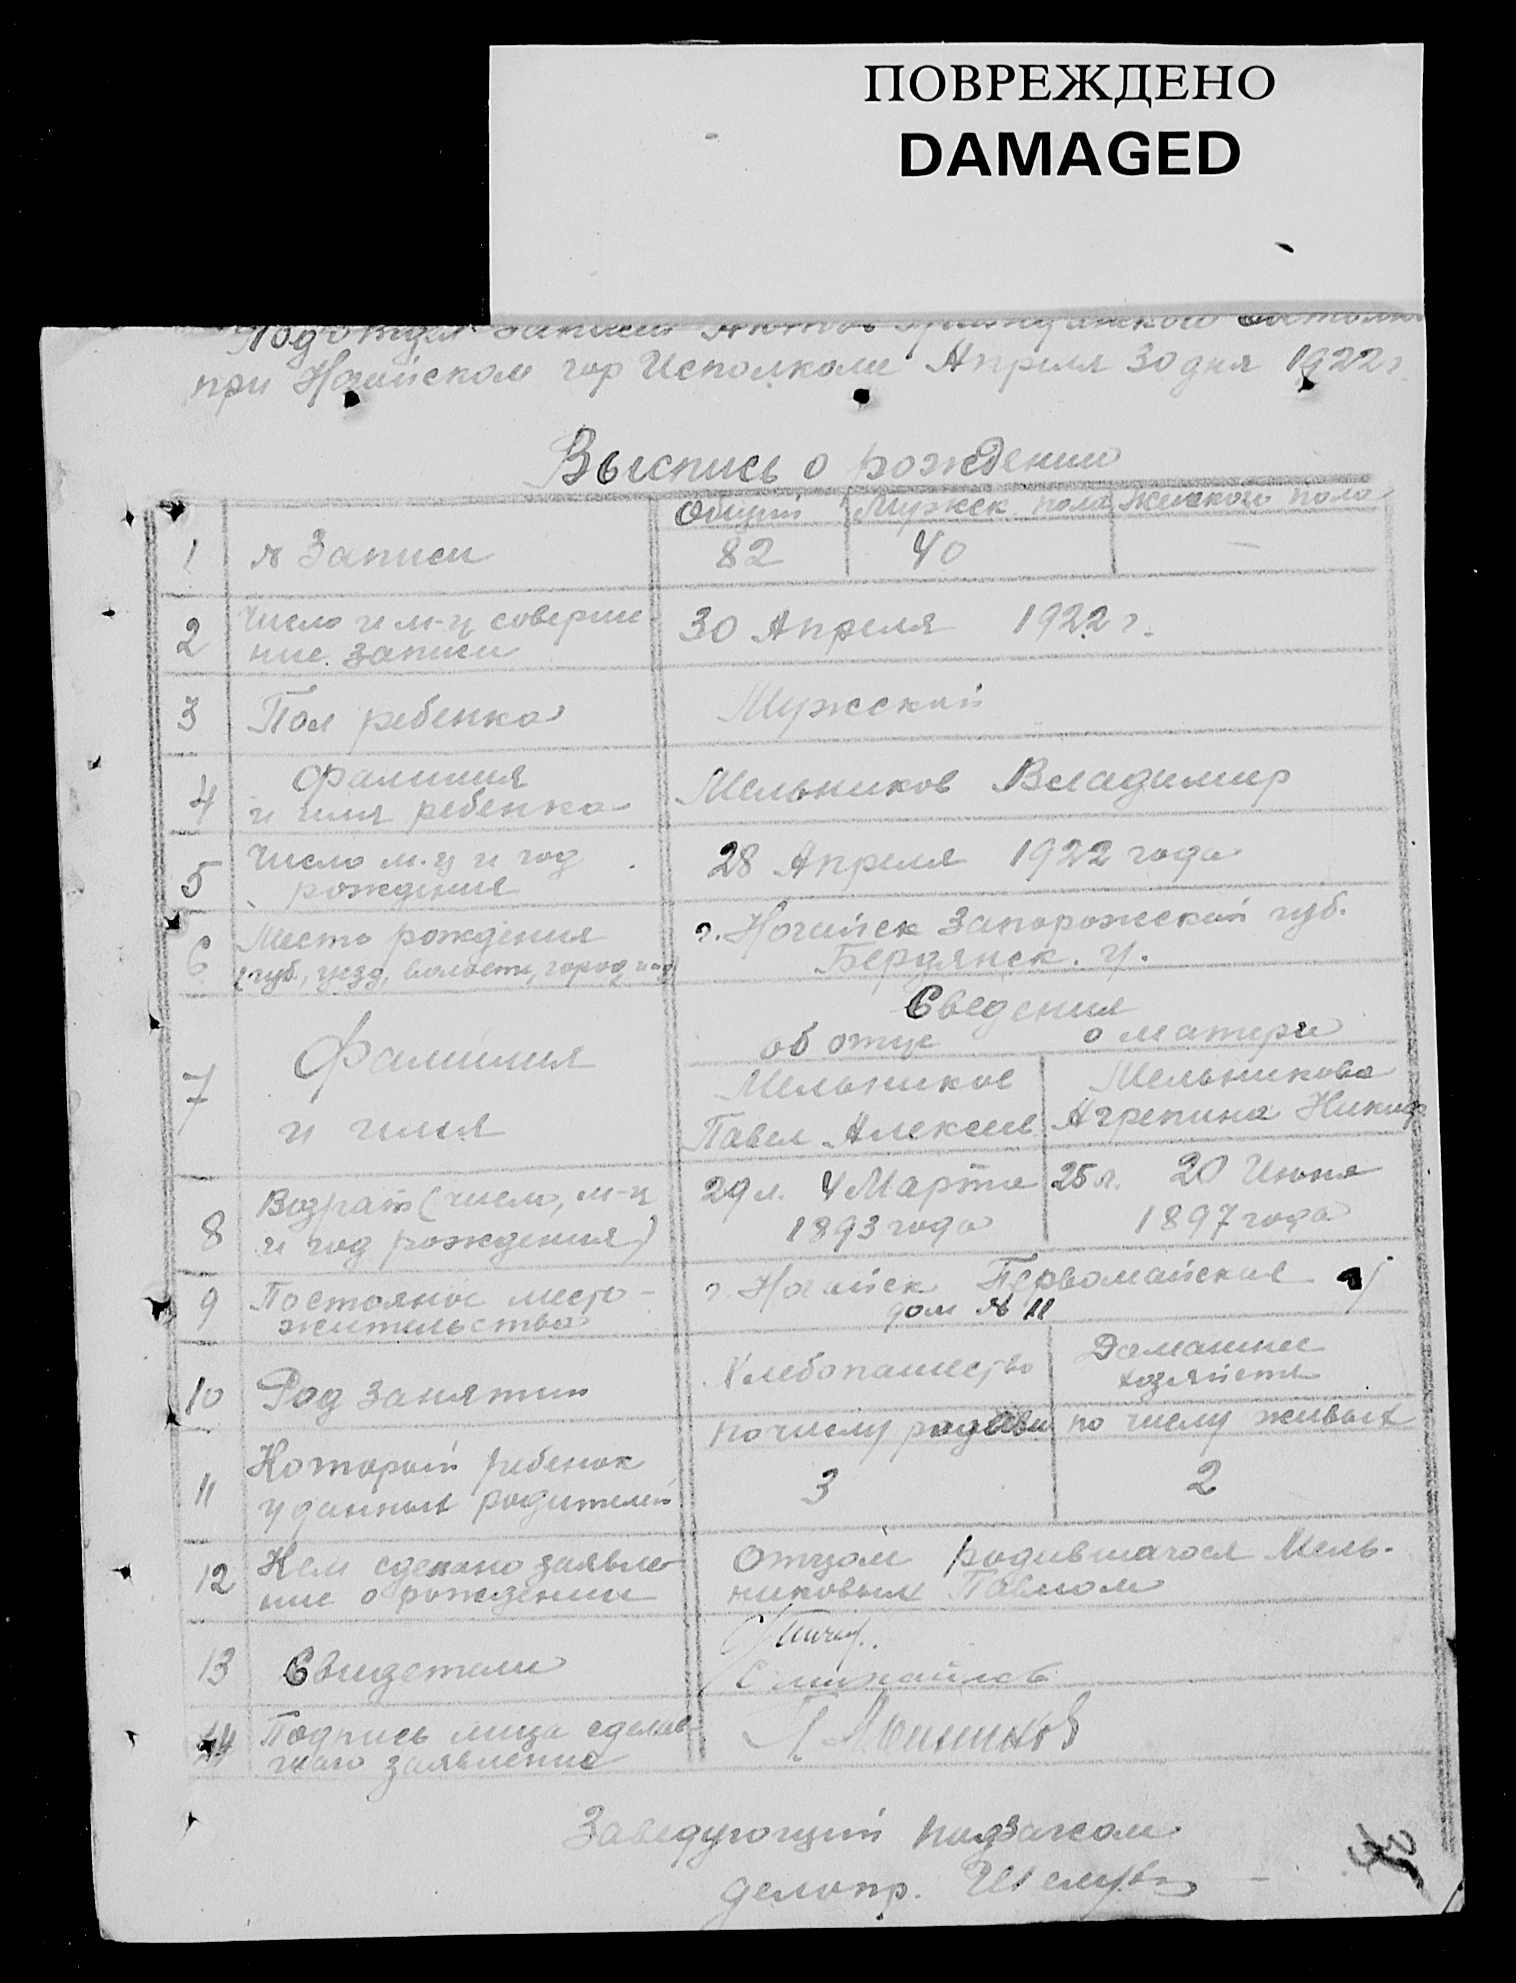 ПОВРЕЖДЕНО
DAMAGED
Подотдел записи Актов Гражданского Состояни
при Ногайском гор Исполкоме Апреля 30 дня 1922 г.
Выпись о рождении
Общий Мужск. пола Женского пола
1 № Записи 82 40 —
2 Число и м-ц соверше-
ние записи
30 Апреля 1922 г.
3 Пол ребенка Мужской
4 Фамилия
и имя ребенка
Мельников Владимир
5 Число м-ц и год
рождения
28 Апреля 1922 года
6 Место рождения
(губ., уезд, волость, город и др)
г. Ногайск Запорожской губ.
Бердянск. у.
Сведения
об отце о матери
7 Фамилия
и имя
Мельников
Павел Алексеев
Мельникова
Агрепина Никиф
8 Возраст (число, м-ц
и год рождения)
29 л. 4 Марта
1893 года
25 л. 20 Июня
1897 года
9 Постоянное место-
жительство
г. Ногайск Первомайская
дом № 11
10 Род занятий
Хлебопашество
Домашнее
хозяйств
11 Который ребенок
у данных родителей
по числу родивш
3
по числу живых
2
12 Кем сделано заявле-
ние о рождении
Отцом родившагося Мель-
никовым Павлом
13 Свидетели
С михайлов
14 Подпись лица сделав-
шаго заявление
П. Мельников
Заведующий подзагсом
делопр.